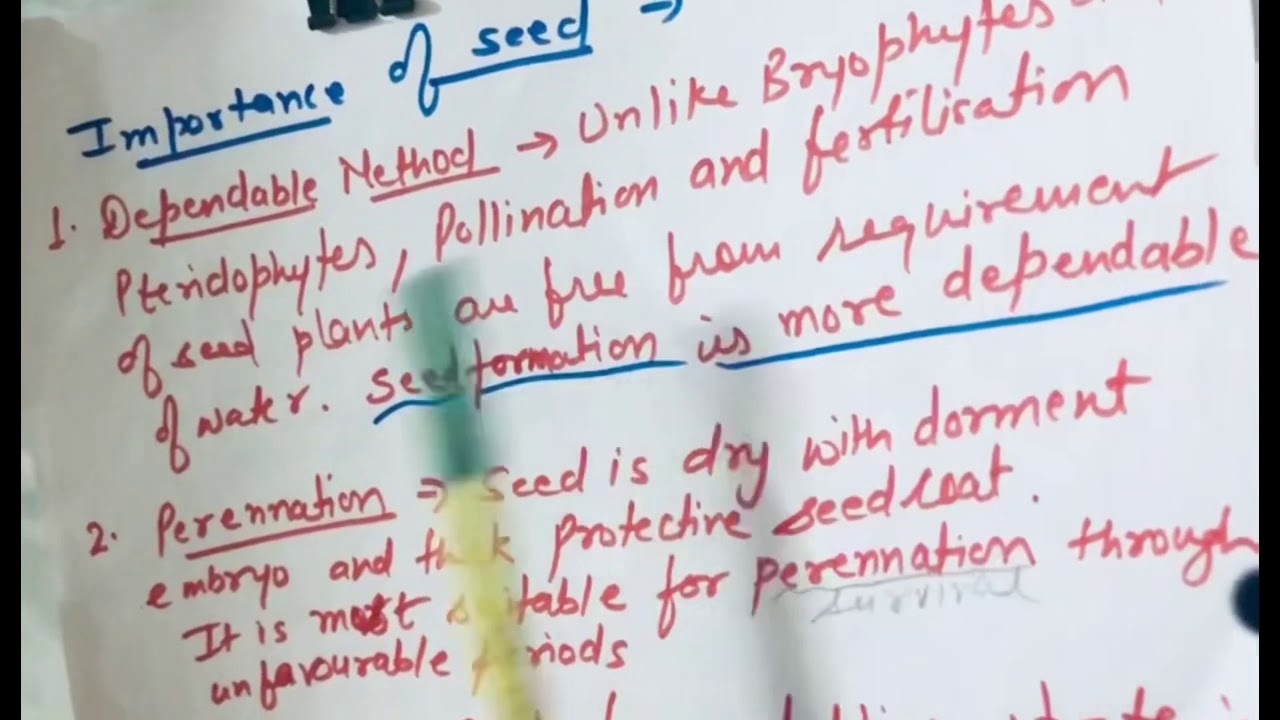 Importance of seed →
1. Dependable Method → Unlike Bryophytes
Pteridophytes, Pollination and fertilisation
of seed plants are free from requirement
of water. Seed formation is more dependable
2. Perennation ⇒ Seed is dry with dorment
embryo and protective seed coat.
It is most suitable for perennation through
survival
unfavourable periods